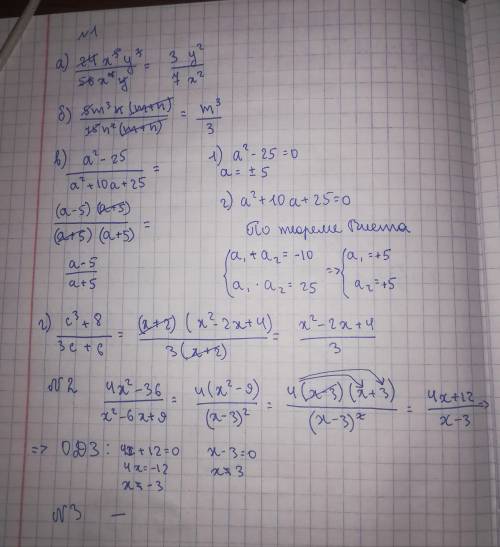 №1
а) 24x⁵y³/56x⁷y = 3y²/7x²
б) 5m³n(m+n)/15n²(m+n) = m³/3
в) a²-25/a²+10a+25 =
(a-5)(a+5)/(a+5)(a+5) =
a-5/a+5
1) a²-25=0
a=±5
2) a²+10a+25=0
По теореме Виета
{a₁+a₂=-10 => {a₁=+5
a₁·a₂=25 a₂=+5
г) c³+8/3c+6 = (x+2)(x²-2x+4)/3(x+2) = x²-2x+4/3
№2 4x²-36/x²-6x+9 = 4(x²-9)/(x-3)² = 4(x-3)(x+3)/(x-3)² = 4x+12/x-3 =>
=> ОДЗ: 4x+12=0 x-3=0
4x=-12 x=3
x=-3
№3 —